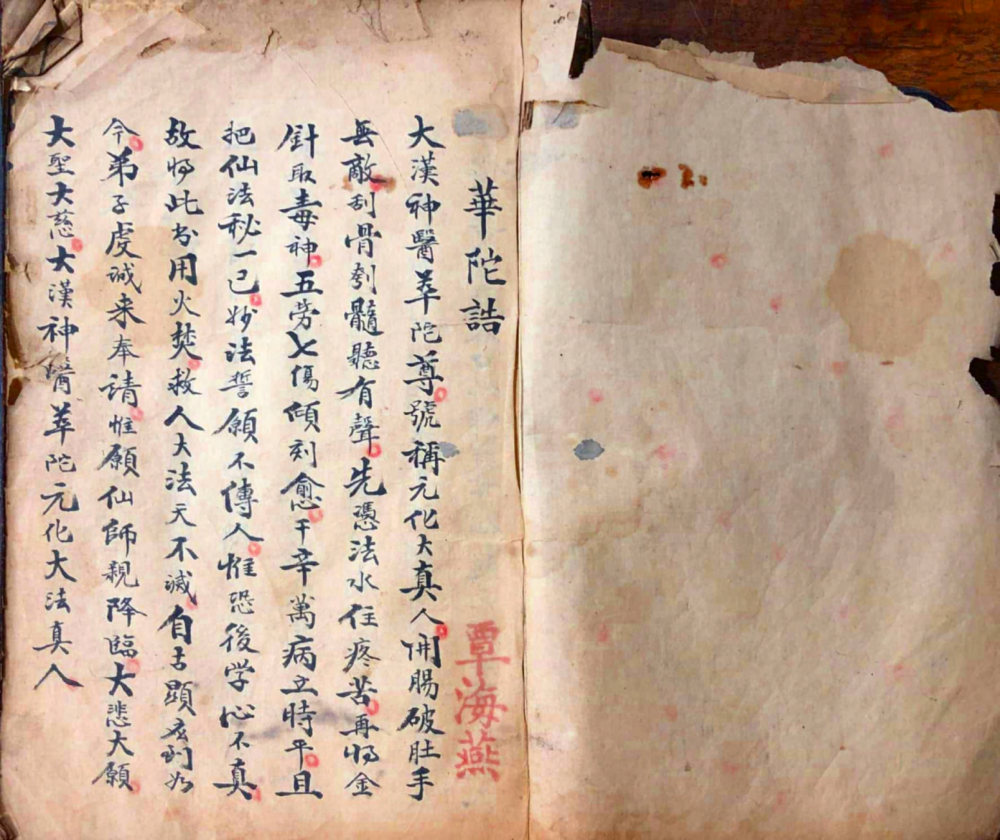 華陀誥
覃海燕
大漢神醫華陀尊號稱元化大真人開腸破肚手
無敵刮骨刳髓聽有聲先憑法水住疼苦再将金
針取毒神五劳七傷傾刻愈千辛萬病立時平且
把仙法秘一己妙法誓願不傳人惟恐後学心不真
故将此书用火焚救人大法天不滅自古顯应到如
今弟子虔诚来奉請惟願仙師親降臨大悲大願
大聖大慈大漢神醫華陀元化大法真人